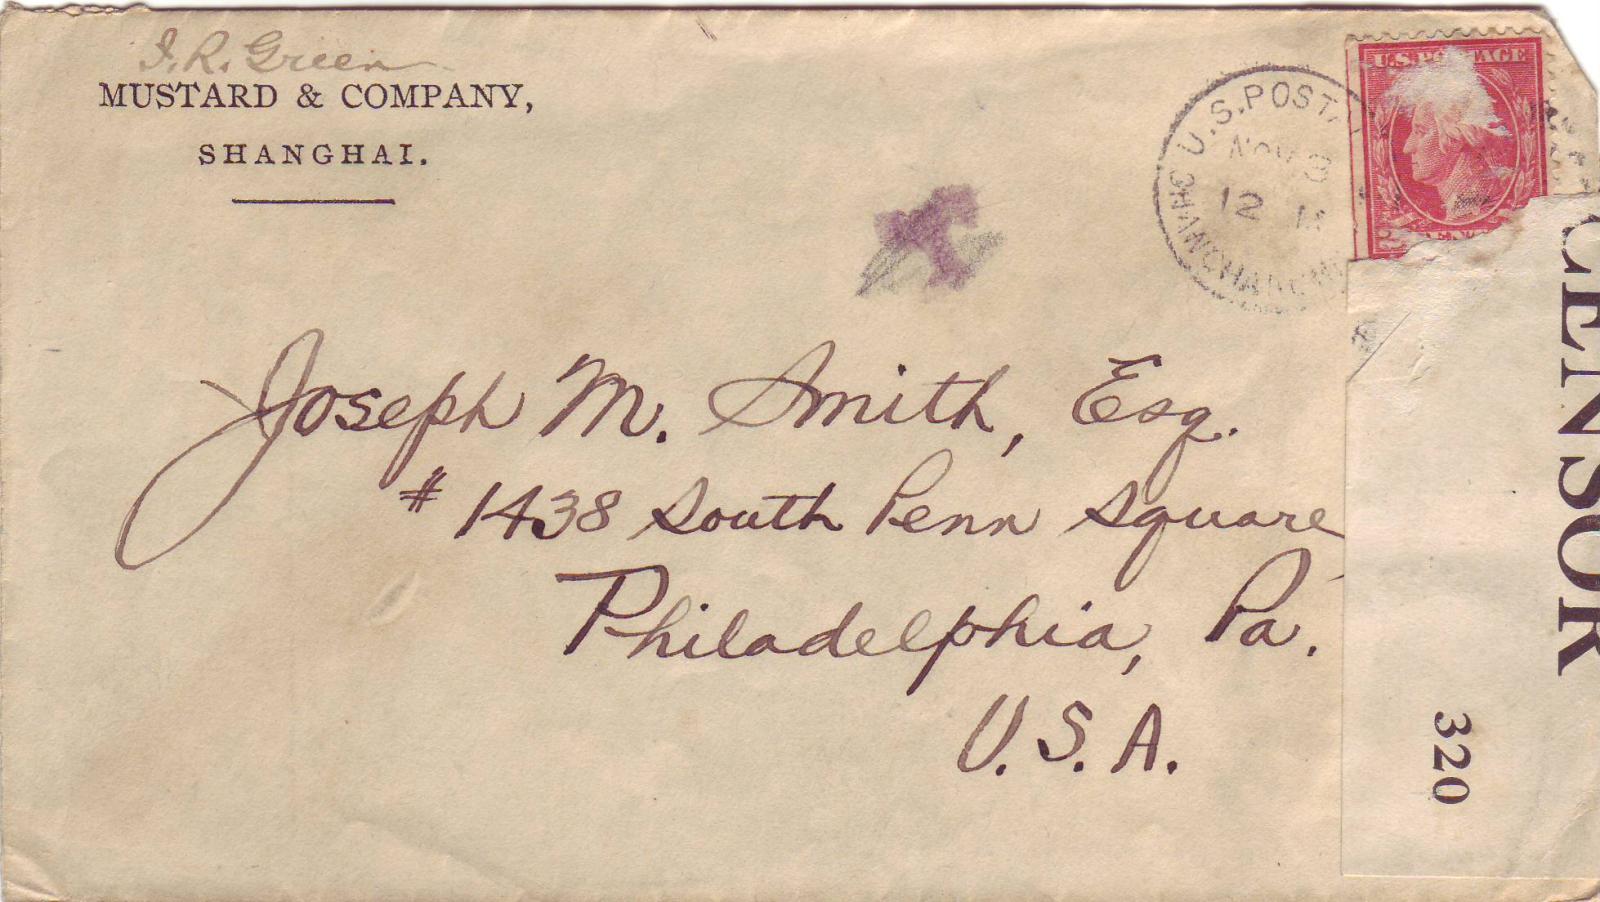 I. R. Green
MUSTARD & COMPANY,
SHANGHAI.
U.S. POSTAGE
2
U.S. POSTAL
NOV 3
12 M
SHANGHAI
T
Joseph M. Smith, Esq.
# 1438 South Penn Square
Philadelphia, Pa.
U.S.A.
CENSOR
320